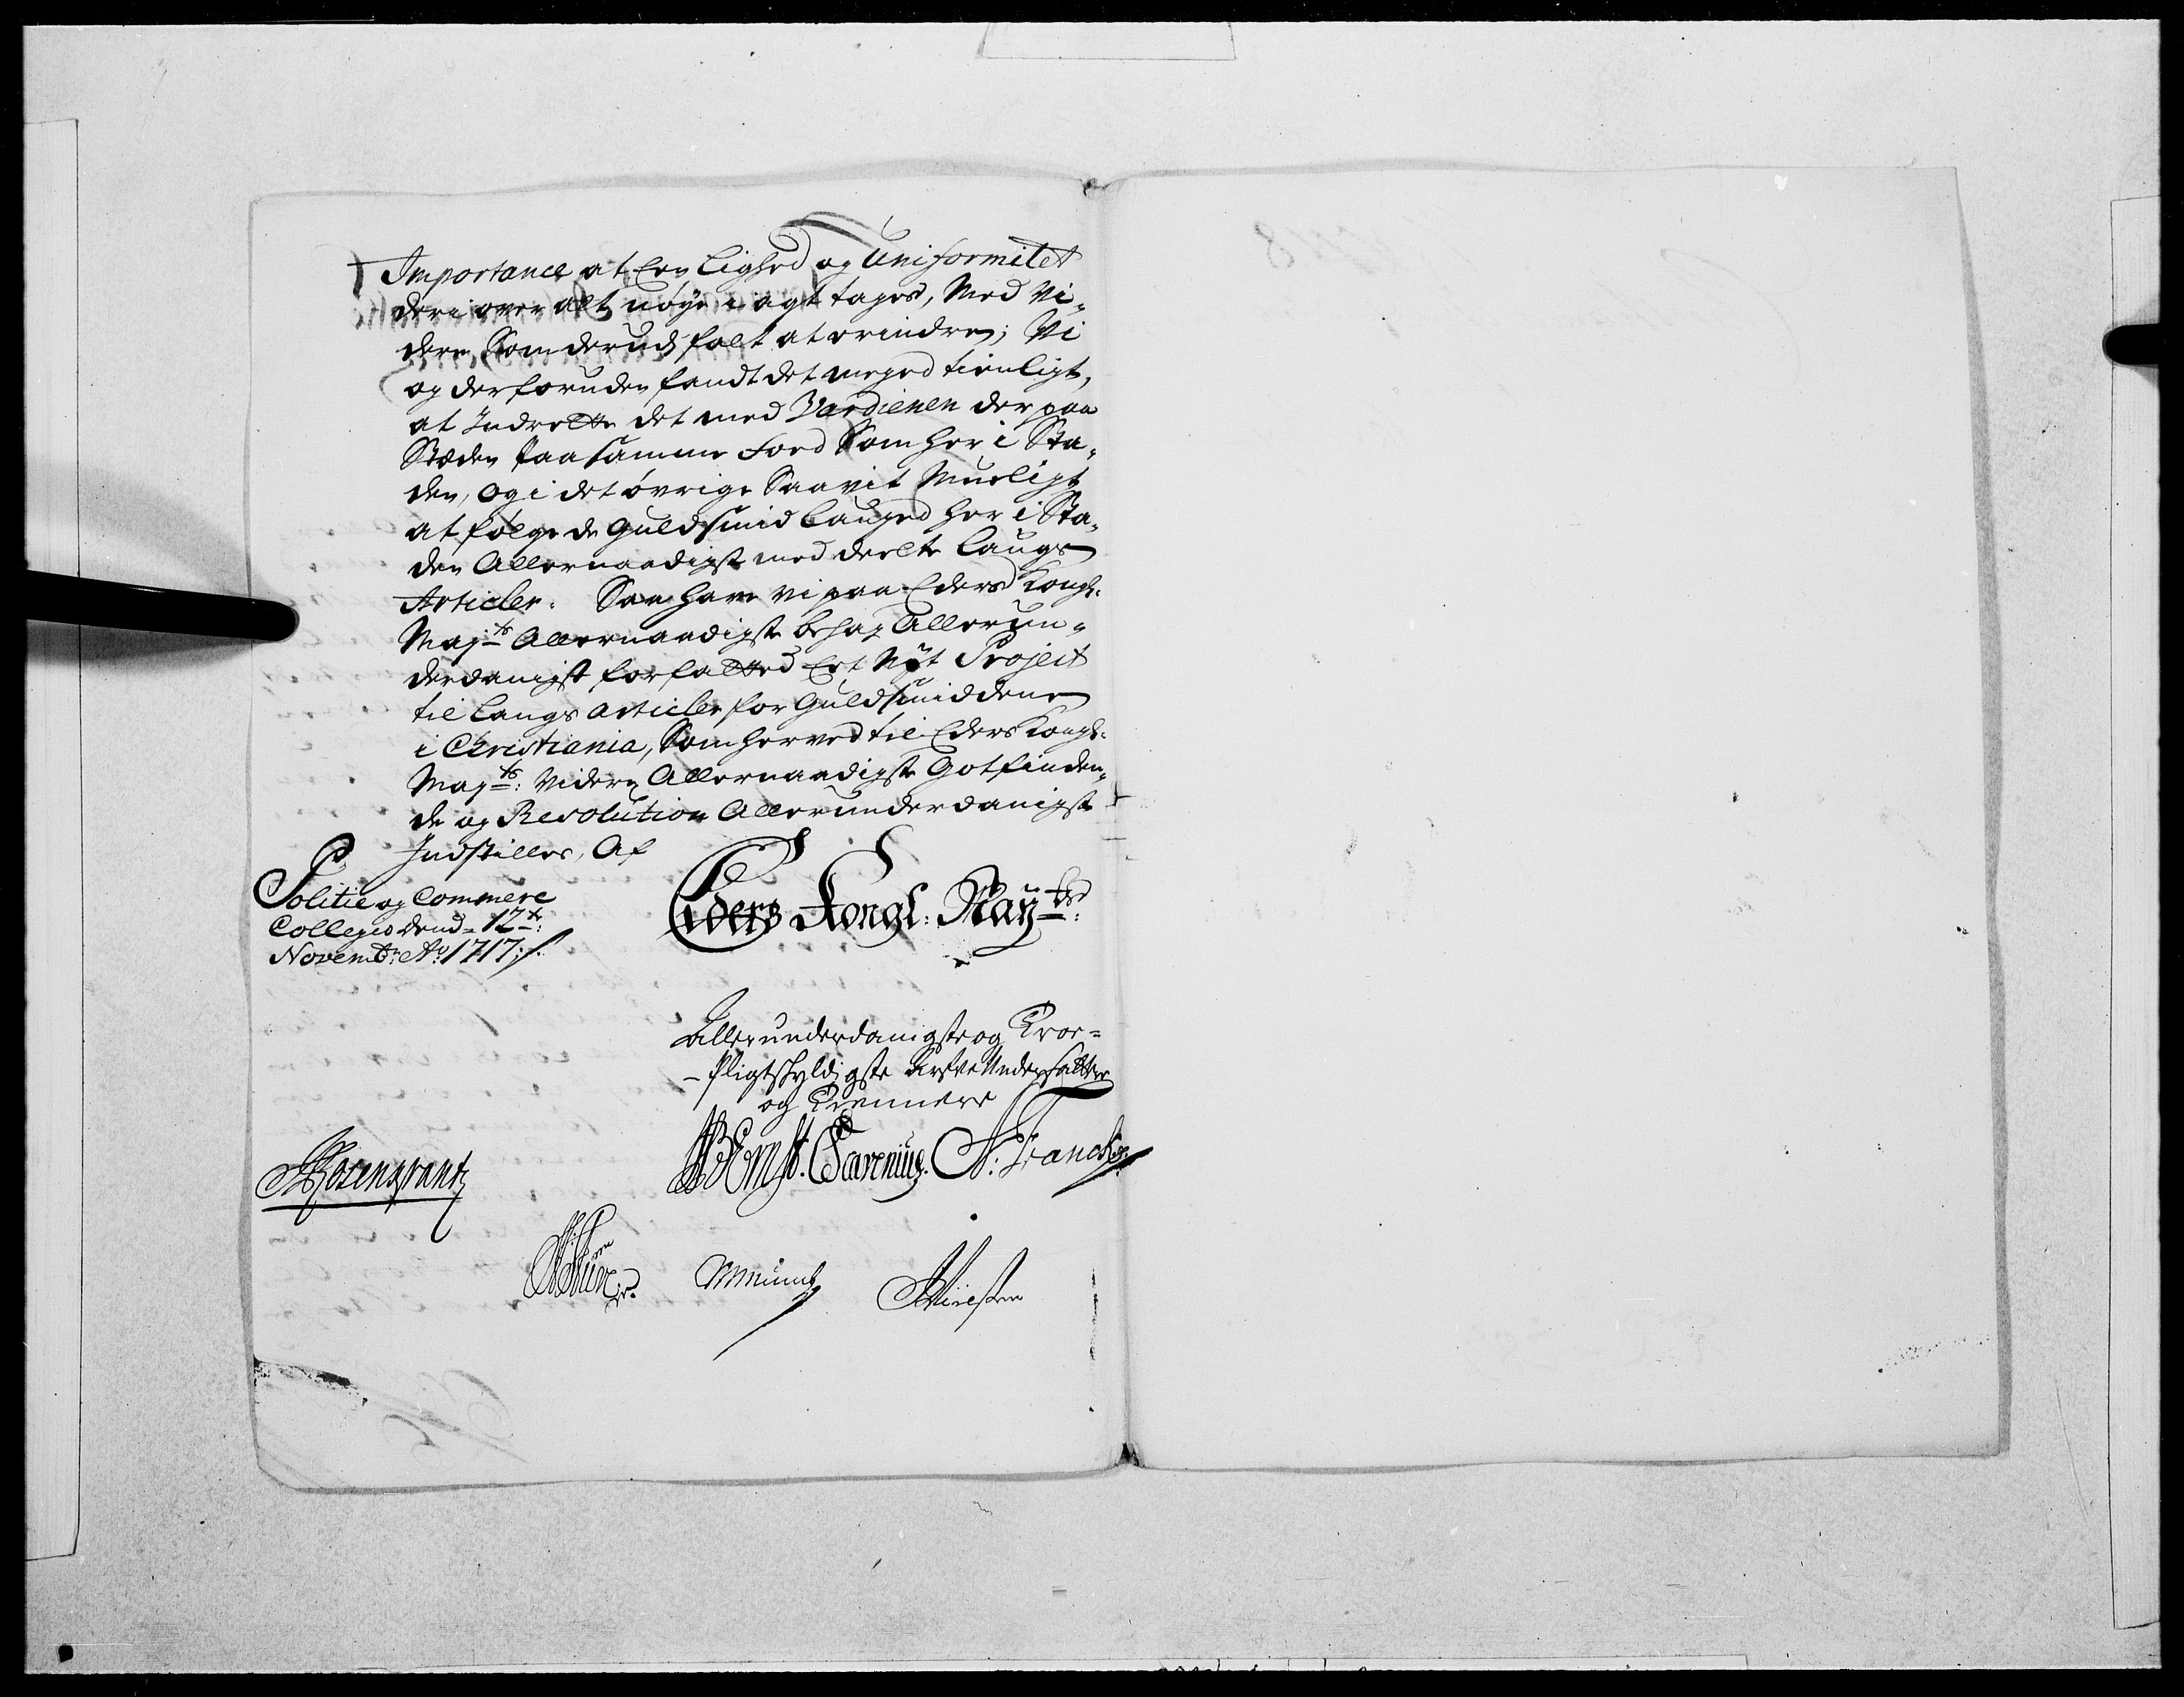 Importance at Een Lighed og Uniformitet
deri over alt nøye i agt tages, Med Vi-
dere Som derud falt at erindre; Vi
og desforuden fandt det meged tienligt,
at Indrette det med Vardienen der paa
Stæden Paa samme Foed Som her i Sta-
den, og i det øvrige Saavit Mueligt
at følge de Guldsmid Lauged her i Sta-
den Allernaadigst med deelte Laugs
Articler. Saa have vi paa Eders Kongl:
Maj:ts Allernaadigste behag Allerun-
derdanigst forfatted Eet Nyt Project
til Laugs Articler for Guldsmiddene
i Christiania, Som herved til Eders Kongl:
May:ts: Videre Allernaadigste Gotfinden-
de og Resolution Allerunderdanigst
Indstilles, Af
Politie og Commerc
Collegio dend 12te:
Novembr: Ao: 1717:/.
Eders Kongl: May:ts:
Allerunderdanigste og Troe-
-Pligtskyldigste Arfve Undersatter
og Tiennere
Rosenkrantz
BErnst. Scavenius. N: Franchen